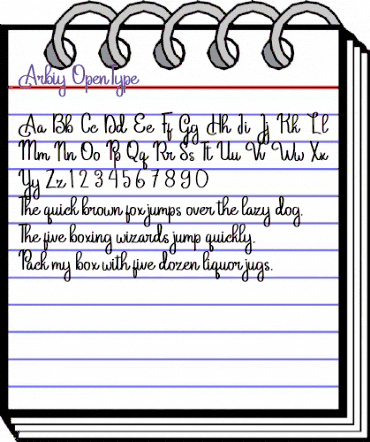 Arbiy OpenType
Aa Bb Cc Dd Ee Ff Gg Hh Ii Jj Kk Ll
Mm Nn Oo Pp Qq Rr Ss Tt Uu Vv Ww Xx
Yy Zz 1 2 3 4 5 6 7 8 9 0
The quick brown fox jumps over the lazy dog.
The five boxing wizards jump quickly.
Pack my box with five dozen liquor jugs.